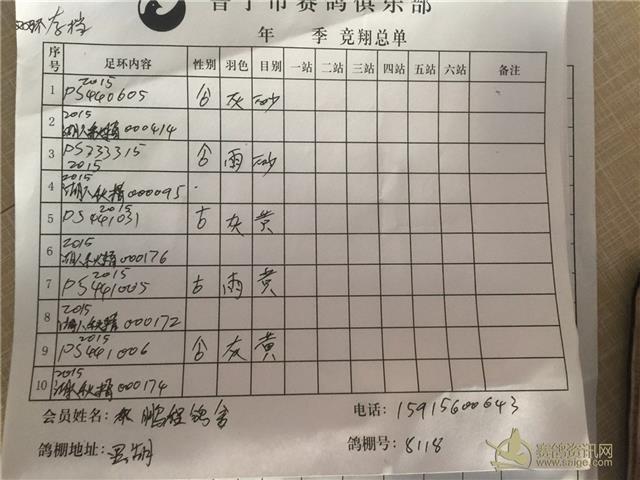 存档
普宁市赛鸽俱乐部
年 季 竞翔总单
序号 足环内容 性别 羽色 目别 一站 二站 三站 四站 五站 六站 备注
1 2015 PS440605 灰 砂
2 2015 000414
3 PS233315 2015 雨 砂
4 2015 000095
5 2015 PS441031 灰 黄
6 2015 000176
7 2015 PS441005 雨 黄
8 2015 000172
9 2015 PS441006 灰 黄
10 2015 000174
会员姓名: 鹏程鸽舍 电话: 15915600643
鸽棚地址: 鸽棚号: 8118
赛鸽资讯网
www.saige.com